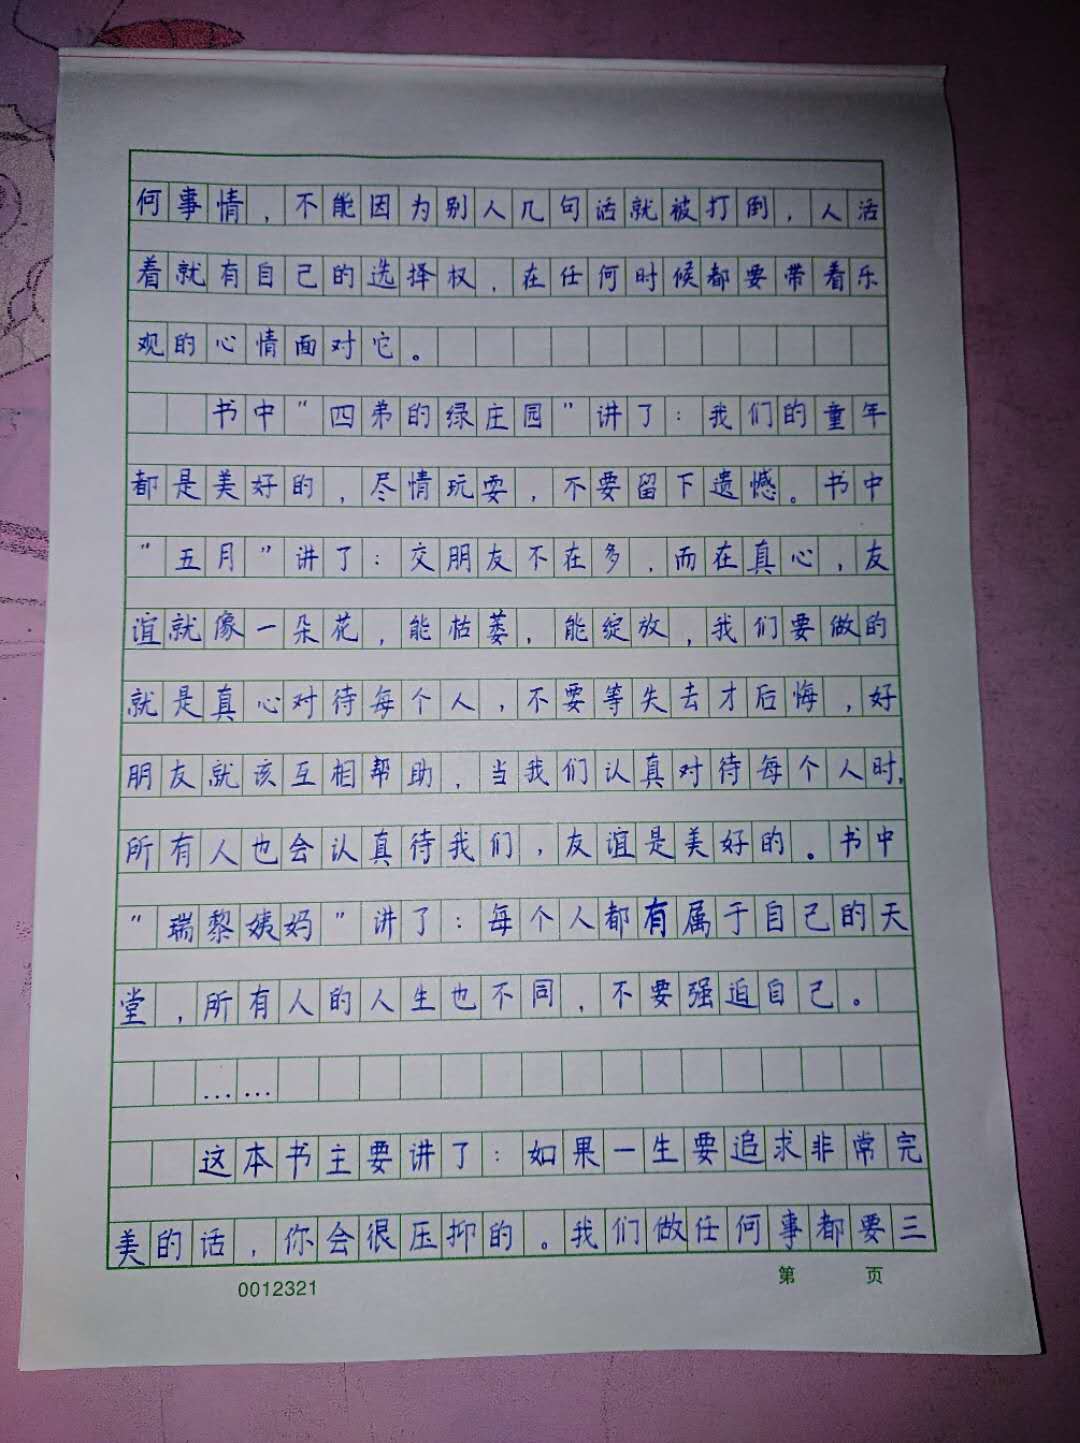 何事情，不能因为别人几句话就被打倒，人活
着就有自己的选择权，在任何时候都要带着乐
观的心情面对它。
书中“四弟的绿庄园”讲了：我们的童年
都是美好的，尽情玩耍，不要留下遗憾。书中
“五月”讲了：交朋友不在多，而在真心，友
谊就像一朵花，能枯萎，能绽放，我们要做的
就是真心对待每个人，不要等失去才后悔，好
朋友就该互相帮助，当我们认真对待每个人时，
所有人也会认真待我们，友谊是美好的。书中
“瑞黎姨妈”讲了：每个人都有属于自己的天
堂，所有人的人生也不同，不要强迫自己。
……
这本书主要讲了：如果一生要追求非常完
美的话，你会很压抑的。我们做任何事都要三
0012321 第 页